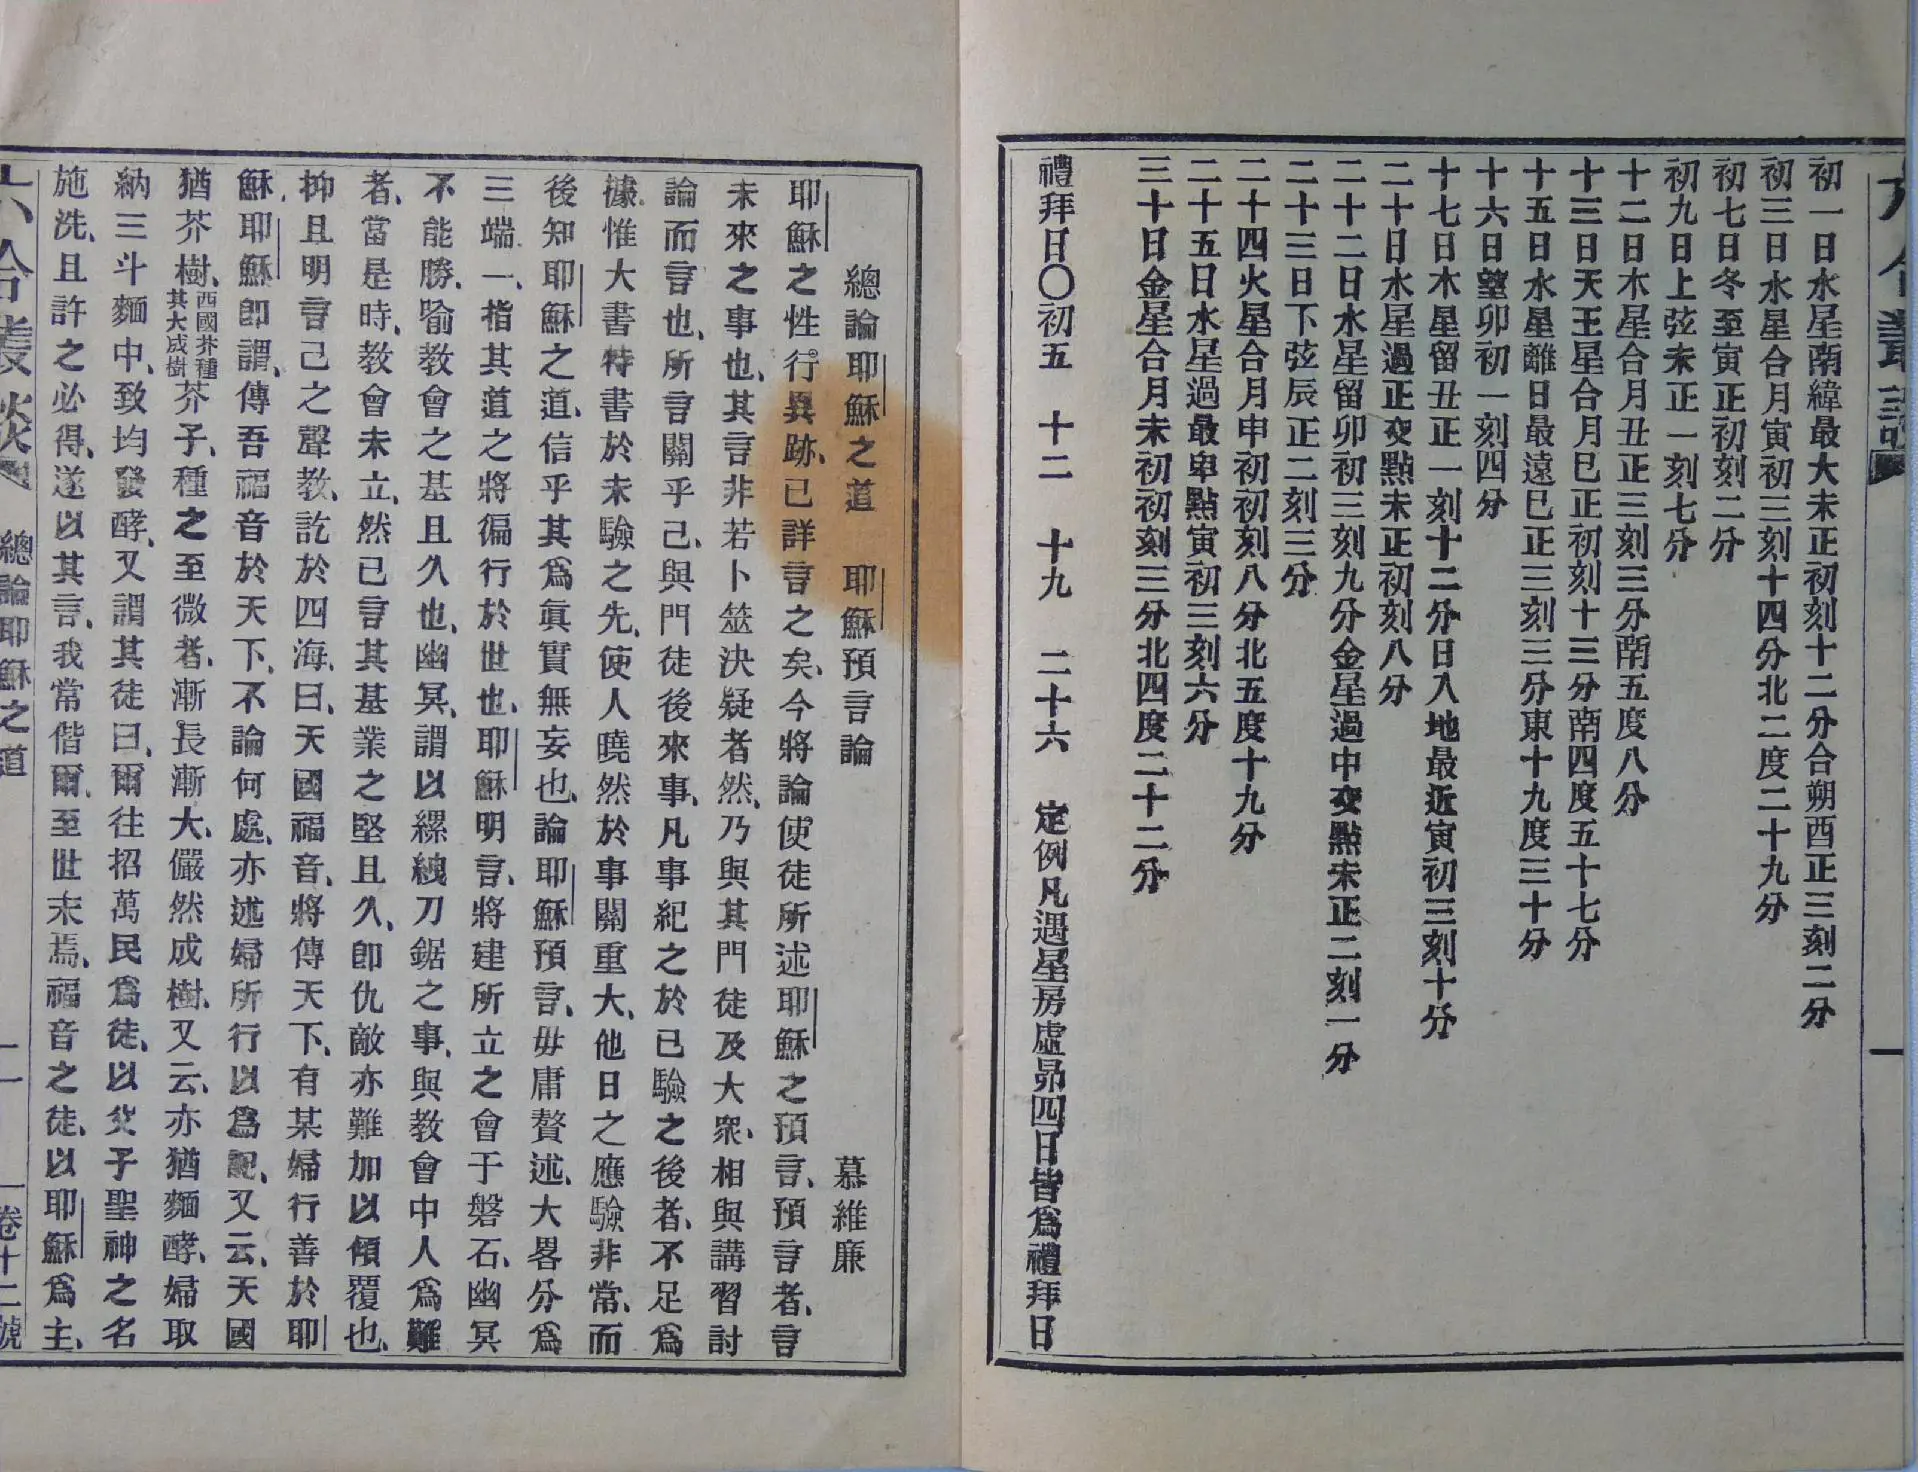 六合叢談
一
初一日水星南緯最大未正初刻十二分合朔酉正三刻二分
初三日水星合月寅初三刻十四分北二度二十九分
初七日冬至寅正初刻二分
初九日上弦未正一刻七分
十二日木星合月丑正三刻三分南五度八分
十三日天王星合月巳正初刻十三分南四度五十七分
十五日水星離日最遠巳正三刻三分東十九度三十分
十六日望卯初一刻四分
十七日木星留丑正一刻十二分日入地最近寅初三刻十分
二十日水星過正交點未正初刻八分
二十二日水星留卯初三刻九分金星過中交點未正二刻一分
二十三日下弦辰正二刻三分
二十四火星合月申初初刻八分北五度十九分
二十五日水星過最卑點寅初三刻六分
三十日金星合月未初初刻三分北四度二十二分
禮拜日〇初五 十二 十九 二十六 定例凡遇星房虛昴四日皆爲禮拜日
總論耶穌之道 耶穌預言論 慕維廉
耶穌之性行異跡、已詳言之矣、今將論使徒所述耶穌之預言、預言者、言
未來之事也、其言非若卜筮決疑者然、乃與其門徒及大衆、相與講習討
論而言也、所言關乎己、與門徒後來事、凡事紀之於已驗之後者、不足爲
據、惟大書特書於未驗之先、使人曉然於事關重大、他日之應驗非常、而
後知耶穌之道、信乎其爲眞實無妄也、論耶穌預言、毋庸贅述、大畧分爲
三端、一、指其道之將徧行於世也、耶穌明言、將建所立之會于磐石、幽冥
不能勝、喻教會之基且久也、幽冥、謂以縲絏刀鋸之事、與教會中人爲難
者、當是時、教會未立、然已言其基業之堅且久、卽仇敵亦難加以傾覆也、
抑且明言己之聲教、訖於四海、曰、天國福音、將傳天下、有某婦行善於耶
穌、耶穌卽謂、傳吾福音於天下、不論何處、亦述婦所行以爲記、又云、天國
猶芥樹、西國芥種其大成樹芥子、種之至微者、漸長漸大、儼然成樹、又云、亦猶麵酵、婦取
納三斗麵中、致均發酵、又謂其徒曰、爾往招萬民爲徒、以父子聖神之名
施洗、且許之必得、遂以其言、我常偕爾、至世末焉、福音之徒、以耶穌爲主、
六合叢談 總論耶穌之道 一 卷十二號